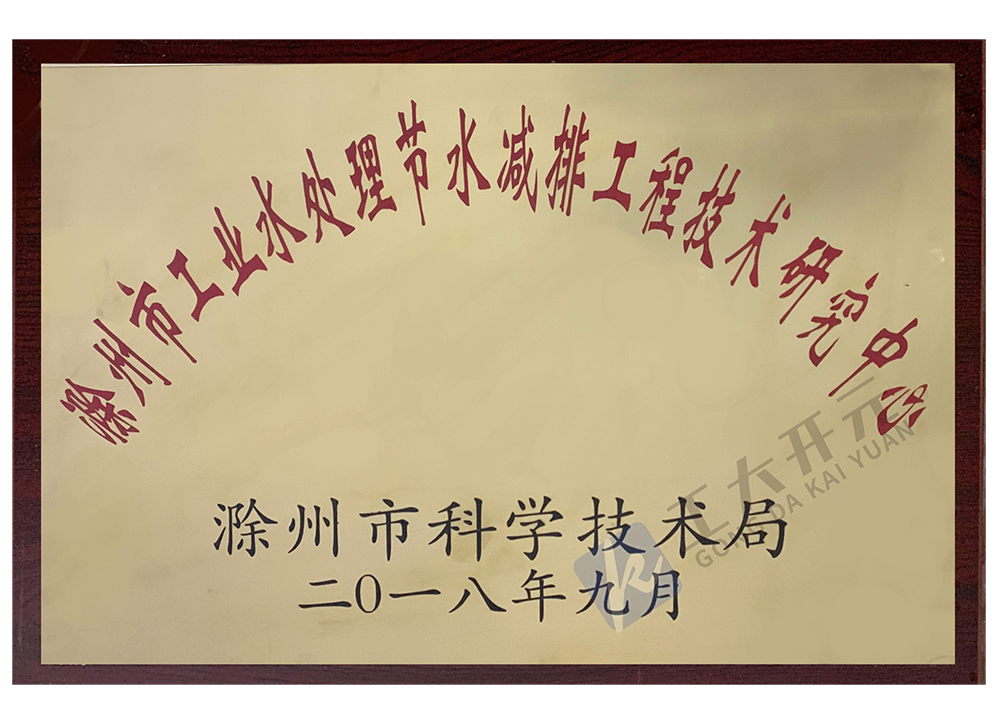 滁州市工业水处理节水减排工程技术研究中心
滁州市科学技术局
二〇一八年九月
工大开元
GONG DA KAI YUAN